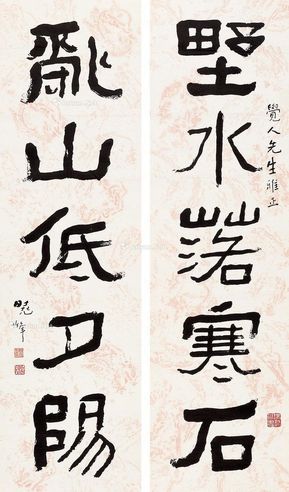 野水落寒石
覺人先生雅正
亂山低夕陽
曉峰